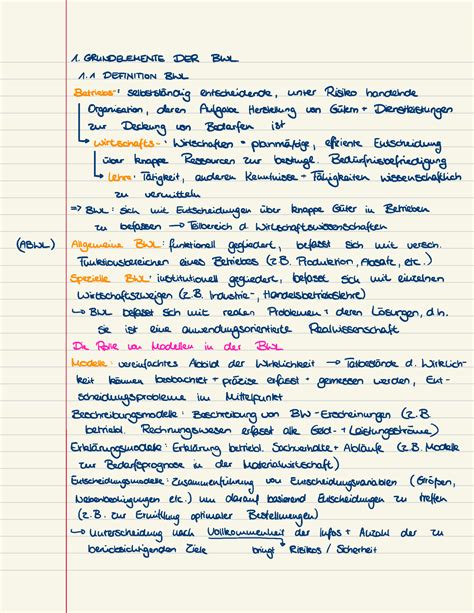 1. GRUNDELEMENTE DER BWL
1.1 DEFINITION BWL
Betriebs-: selbstständig entscheidende, unter Risiko handelnde
Organisation, deren Aufgabe Herstellung von Gütern + Dienstleistungen
zur Deckung von Bedarfen ist
Wirtschafts-: Wirtschaften = planmäßige, effiziente Entscheidung
über knappe Ressourcen zur bestmögl. Bedürfnisbefriedigung
lehre: Tätigkeit, anderen Kenntnisse + Fähigkeiten wissenschaftlich
zu vermitteln
=> BWL: sich mit Entscheidungen über knappe Güter in Betrieben
zu befassen → Teilbereich d. Wirtschaftswissenschaften
(ABWL) Allgemeine BWL: funktionell gegliedert, befasst sich mit versch.
Funktionsbereichen eines Betriebes (z.B. Produktion, Absatz, etc.)
Spezielle BWL: institutionell gegliedert, befasst sich mit einzelnen
Wirtschaftszweigen (z.B. Industrie-, Handelsbetriebslehre)
↳ BWL befasst sich mit realen Problemen + deren Lösungen, d.h.
sie ist eine anwendungsorientierte Realwissenschaft
Die Rolle von Modellen in der BWL
Modelle: vereinfachtes Abbild der Wirklichkeit → Tatbestände d. Wirklich-
keit können beobachtet + präzise erfasst + gemessen werden, Ent-
scheidungsprobleme im Mittelpunkt
Beschreibungsmodelle: Beschreibung von BW-Erscheinungen (z.B.
betriebl. Rechnungswesen erfasst alle Geld- + Leistungsströme)
Erklärungsmodelle: Erklärung betriebl. Sachverhalte + Abläufe (z.B. Modelle
zur Bedarfsprognose in der Materialwirtschaft)
Entscheidungsmodelle: Zusammenführung von Entscheidungsvariablen (Größen,
Nebenbedingungen etc.) um darauf basierend Entscheidungen zu treffen
(z.B. zur Ermittlung optimaler Bestellmengen)
↳ Unterscheidung nach Vollkommenheit der Infos + Anzahl der zu
berücksichtigenden Ziele bringt Risikos / Sicherheit